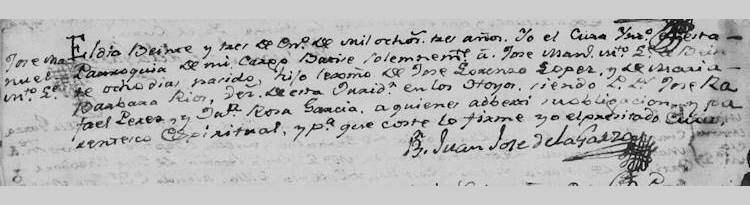 Jose Ma-
nuel
El dia Beinte y tres de En.o de mil ochos. tres años. Yo el Cura Ynt.o de esta
Parroquia de mi Cargo Batise solemnem.te a Jose Man.l
te ocho dias nacido, hijo lexmo de Jose Lorenzo Lopez, y de Maria
Barbara Rios, de esta Jurid.n en los Hoyos, siendo P. Jose Ra-
fael Perez y Rosa Garcia, a quienes adberti su obligacion, y pa-
rentesco Espiritual, y p.a que coste lo firme yo el presitado Cura.
B.r Juan Jose de la Garza